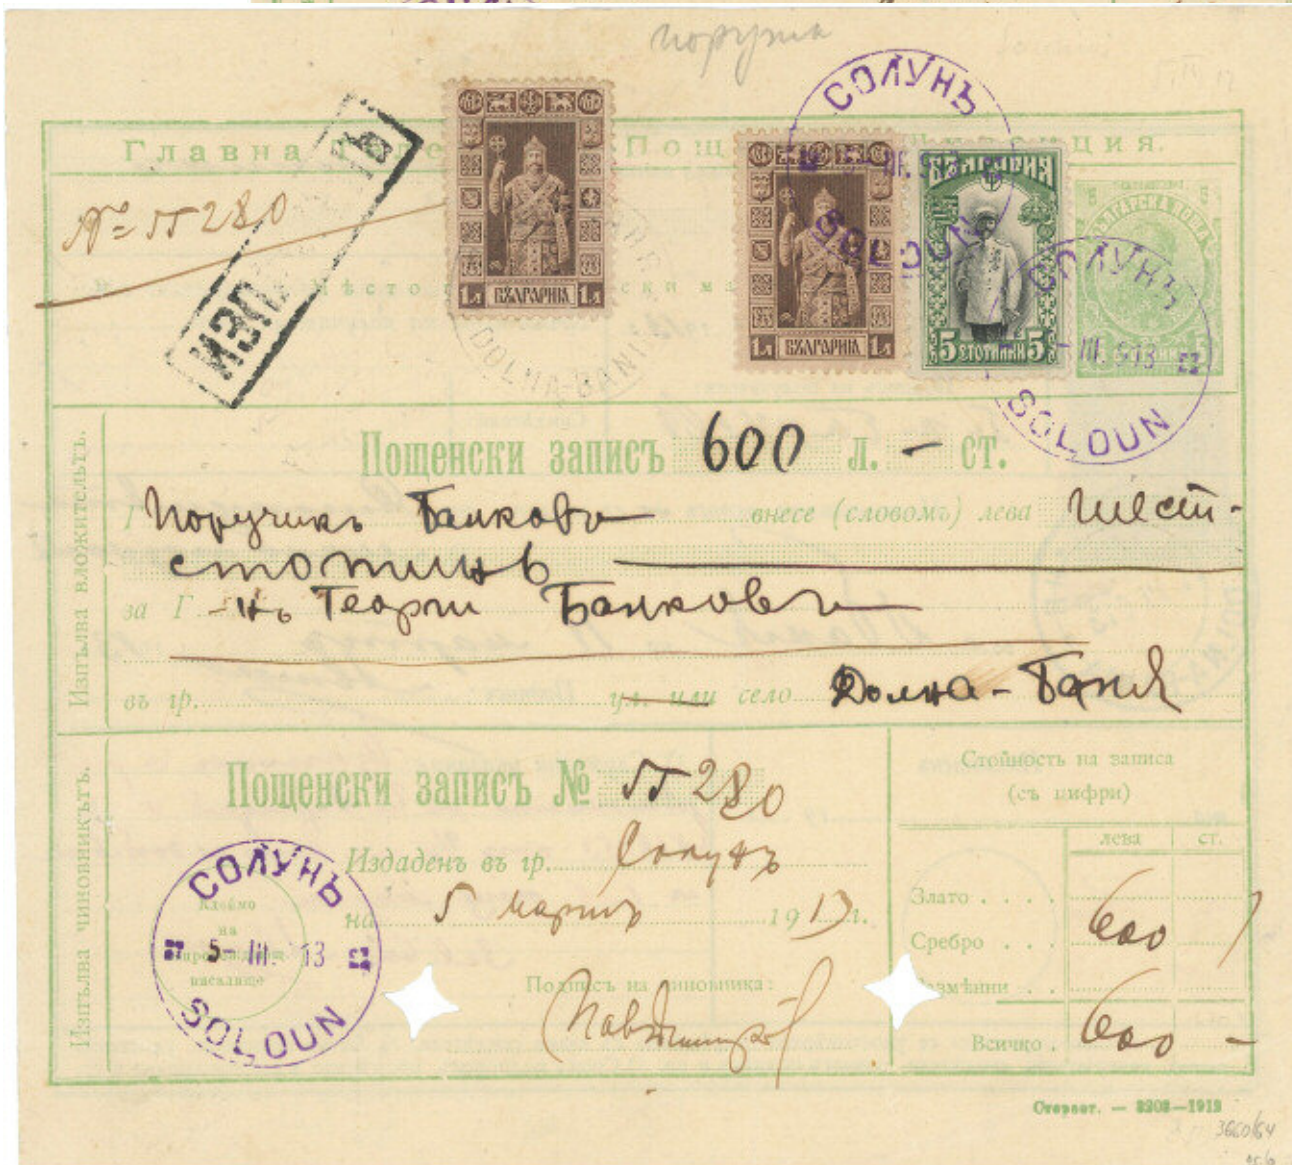 поручик
СОЛУНЪ
Главна Пощ ция.
№ П 280
ИЗП НЪ
1л БЪЛГАРИЯ 1л
DOLNA-BANIA
1л БЪЛГАРИЯ 1л
БЪЛГАРИЯ
5 СТОТИНКИ 5
SOLOUN
БЪЛГАРСКА ПОЩА
СОЛУНЪ
III. 913
SOLOUN
Изпълва вложительтъ.
Пощенски записъ 600 л. – ст.
Г Поручикъ Банковъ внесе (словомъ) лева Шест-
стотинъ
за Г -нъ Георги Банковъ
въ гр. ул. или село Долна-Баня
Изпълва чиновникътъ.
Пощенски записъ № П 280
Издаденъ въ гр. Солунъ
на 5 мартъ 1913 г.
Подпис на чиновника:
СОЛУНЪ
Клеймо
на
населище
5- III. 913
SOLOUN
Стойность на записа
(съ цифри)
лева ст.
Злато . . . .
Сребро . . . 600
Размѣнни . .
Всичко . 600 -
3208—1912
3660/64